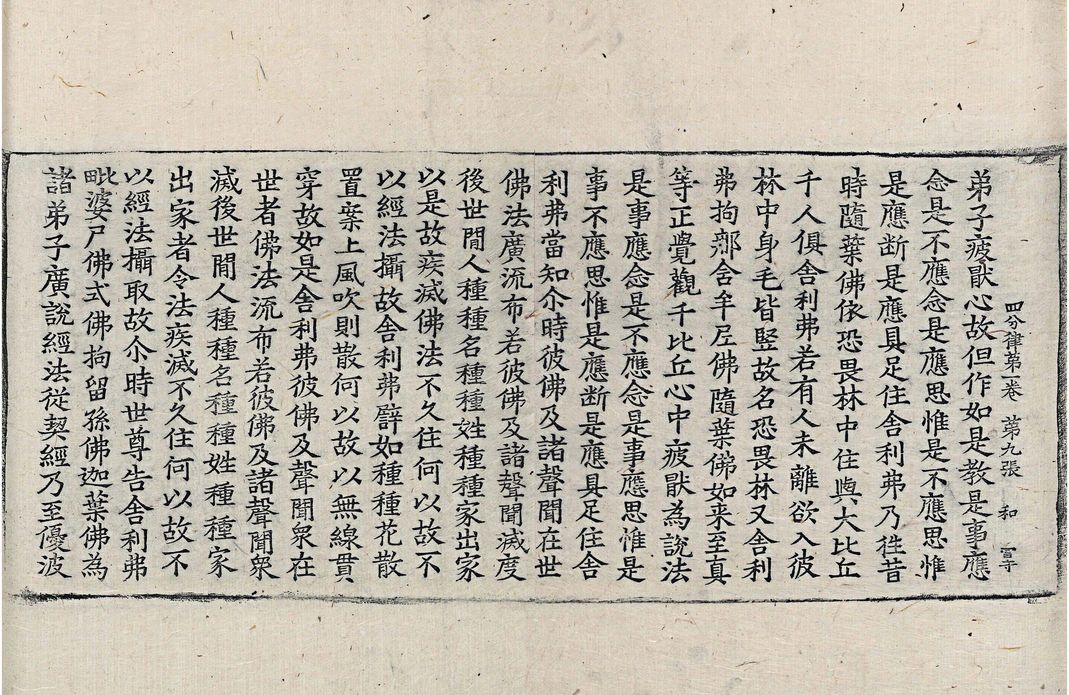 四分律第一卷 第九張 和
弟子疲猒心故但作如是教是事應
念是不應念是應思惟是不應思惟
是應断是應具足住舍利弗乃徃昔
時隨葉佛依恐畏林中住與大比丘
千人俱舍利弗若有人未離欲入彼
林中身毛皆竪故名恐畏林又舍利
弗拘那舍牟尼佛隨葉佛如来至真
等正覺觀千比丘心中疲猒為說法
是事應念是不應念是事應思惟是
事不應思惟是應断是應具足住舍
利弗當知尒時彼佛及諸聲聞在世
佛法廣流布若彼佛及諸聲聞滅度
後世間人種種名種種姓種種家出家
以是故疾滅佛法不久住何以故不
以經法攝故舍利弗譬如種種花散
置案上風吹則散何以故以無線貫
穿故如是舍利弗彼佛及聲聞衆在
世者佛法流布若彼佛及諸聲聞衆
滅後世間人種種名種種姓種種家
出家者令法疾滅不久住何以故不
以經法攝取故尒時世尊告舍利弗
毗婆尸佛式佛拘留孫佛迦葉佛為
諸弟子廣說經法從契經乃至優波